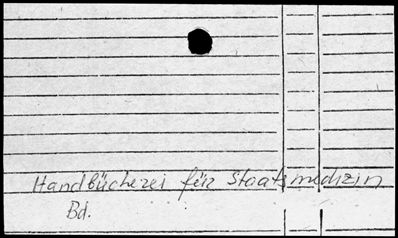 Handbücherei für Staatsmedizin
Bd.